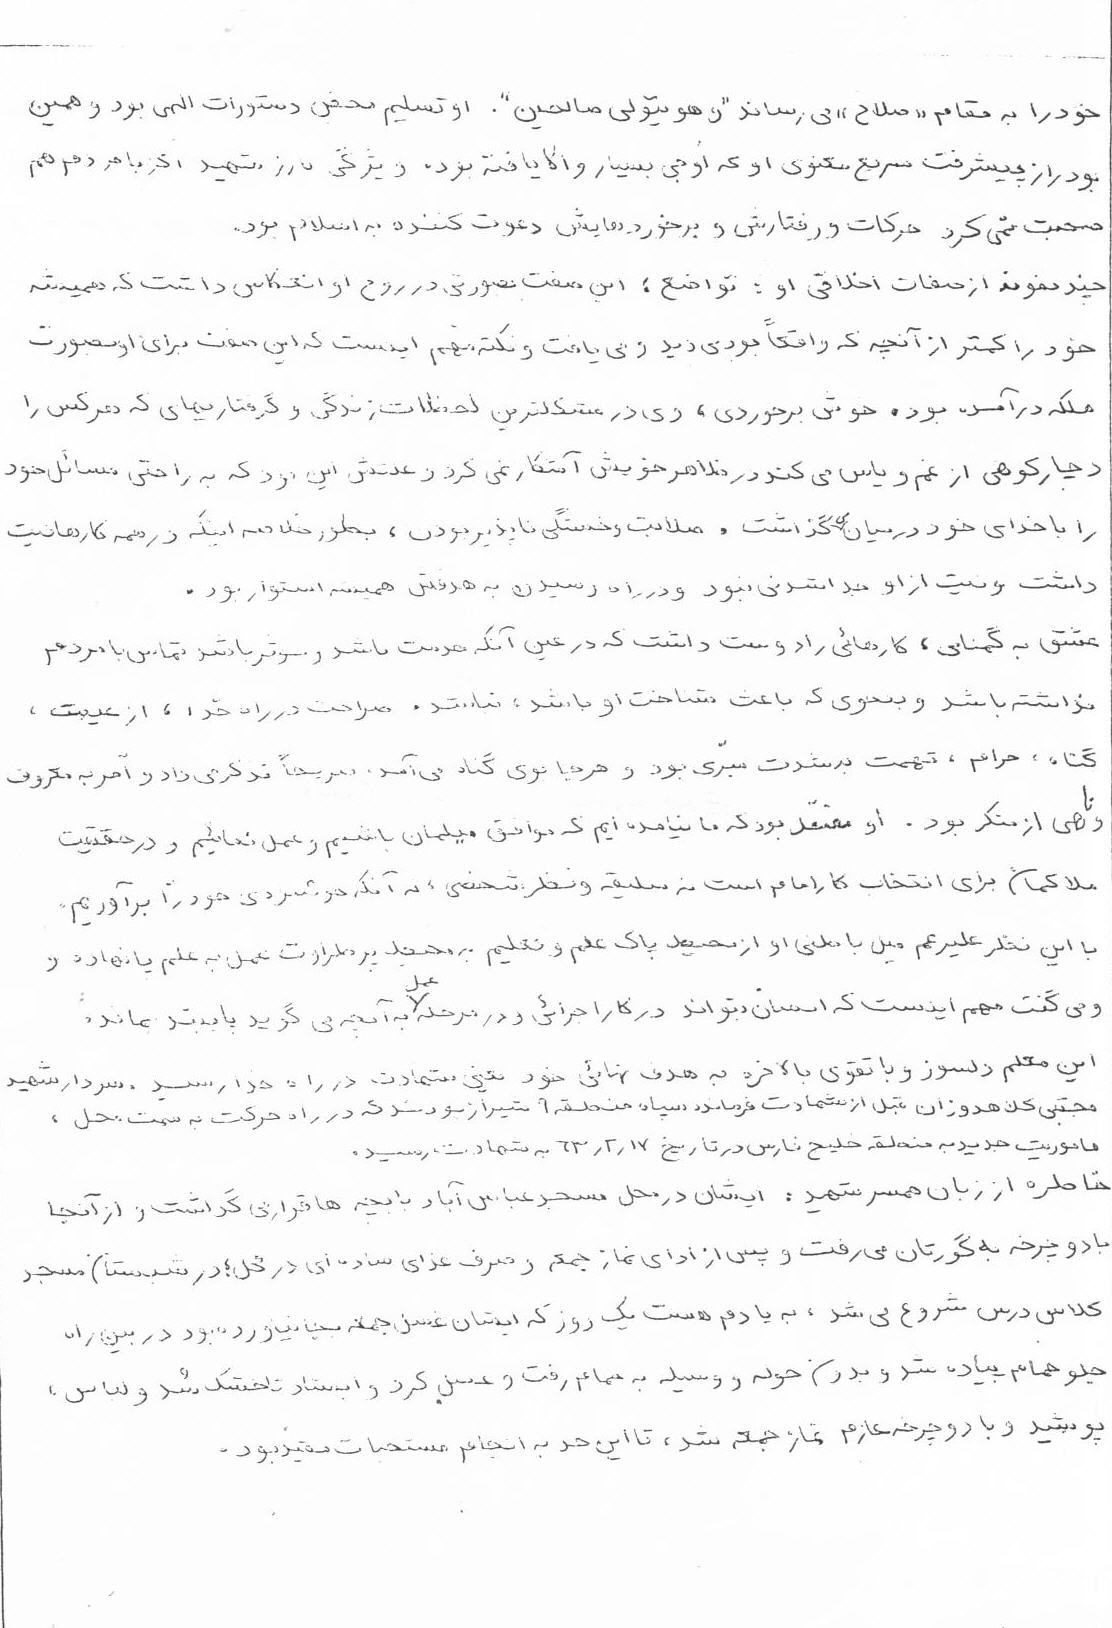 خود را به مقام «صلاح» می رساند "و هو یتولی صالحین". او تسلیم محض دستورات الهی بود و همین
بود راز پیشرفت سریع معنوی او که اوجی بسیار والا یافته بود. ویژگی بارز شهید اگر با مردم هم
صحبت نمی کرد حرکات و رفتارش و برخوردهایش دعوت کننده به اسلام بود.
چند نمونه از صفات اخلاقی او: تواضع؛ این صفت بصورتی در روح او انعکاس داشت که همیشه
خود را کمتر از آنچه که واقعاً بود می دید و می یافت و نکته مهم اینست که این صفت برای او بصورت
ملکه درآمده بود. خوش برخوردی، وی در مشکلترین لحظات زندگی و گرفتاریهای که هر کس را
دچار کوهی از غم و یاس می کند در ظاهر خویش آشکار نمی کرد و علتش این بود که به راحتی مسائل خود
را با خدای خود در میان می گذاشت. صلابت و خستگی ناپذیر بودن، بطور خلاصه اینکه در همه کارها نیت
داشت و نیت از او جدا شدنی نبود و در راه رسیدن به هدفش همیشه استوار بود.
عشق به گمنامی، کارهائی را دوست داشت که در عین آنکه خدمت باشد و موثر باشد تماس با مردم
نداشته باشد و بنحوی که باعث شناخت او باشد، نباشد. صراحت در راه خدا، از غیبت،
گناه، حرام، تهمت بشدت مبرّی بود و هرجا بوی گناه می آمد، صریحاً تذکر می داد و آمر به معروف
و ناهی از منکر بود. او معتقد بود که ما نیامده ایم که موافق میلمان باشیم و عمل نمائیم و در حقیقت
ملاکمان برای انتخاب کار امام است نه سلیقه و نظر شخصی، نه آنکه خوشنودی خود را برآوریم.
با این نظر علیرغم میل باطنی او از محیط پاک علم و تعلیم به محیط پر طراوت عمل به علم پا نهاده و
و می گفت مهم اینست که انسان بتواند در کار اجرائی و در مرحله عمل به آنچه می گوید پایبند بماند.
این معلم دلسوز و با تقوی بالاخره به هدف نهائی خود یعنی شهادت در راه خدا رسید. سردار شهید
مجتبی کلاهدوزان قبل از شهادت فرمانده سپاه منطقه ۹ شیراز بودند که در راه حرکت به سمت محل،
ماموریت جدید به منطقه خلیج فارس در تاریخ ۶۳/۲/۱۷ به شهادت رسید.
خاطره از زبان همسر شهید: ایشان در محل مسجد عباس آباد با بچه ها قرار می گذاشت و از آنجا
با دوچرخه به گورتان می رفت و پس از ادای نماز جمعه و صرف غذای ساده ای در محل در شبستان مسجد
کلاس درس شروع می شد، به یادم هست یک روز که ایشان غسل جمعه بجا نیاورده بود در بین راه
جلو حمام پیاده شد و بدون حوله و وسیله به حمام رفت و غسل کرد و ایستاد تا خشک شد و لباس،
پوشید و با دوچرخه عازم نماز جمعه شد، تا این حد به انجام مستحبات مقید بود.